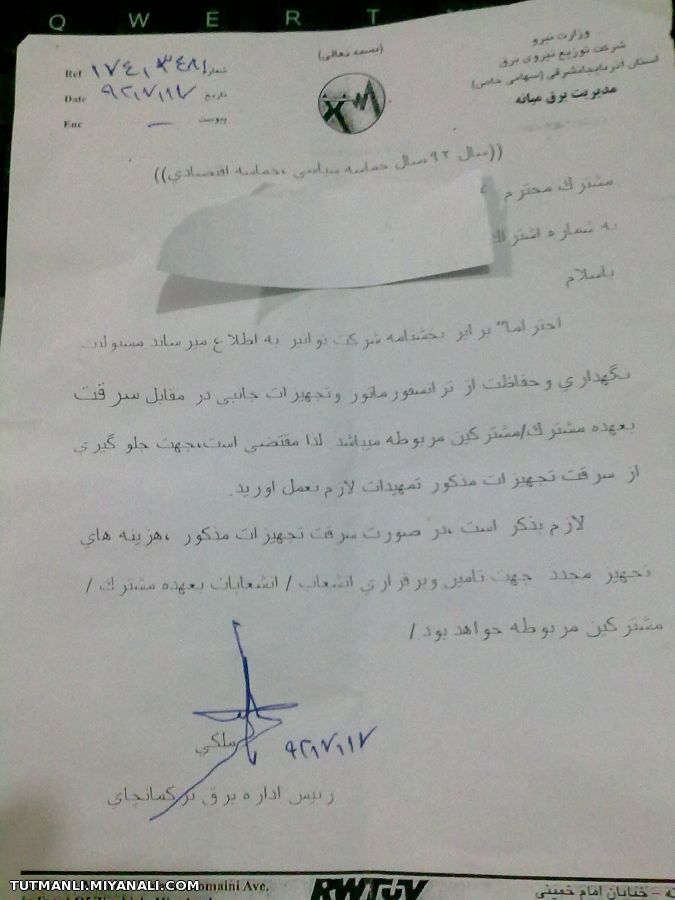 Q W E R T
(بسمه تعالی)
وزارت نیرو
شرکت توزیع نیروی برق
استان آذربایجانشرقی (سهامی خاص)
مدیریت برق میانه
Ref شماره
Date ۹۲/۷/۱۷ تاریخ
Enc — پیوست
((سال ۹۲ سال حماسه سیاسی ،حماسه اقتصادي))
مشترك محترم
به شماره اشتراك
باسلام
احتراما" برابر بخشنامه شرکت توانیر به اطلاع میرساند مسئولیت
نگهداري وحفاظت از ترانسفورماتور وتجهیزات جانبی در مقابل سرقت
بعهده مشترك/مشترکین مربوطه میباشد لذا مقتضی است،جهت جلوگیري
از سرقت تجهیزات مذکور تمهیدات لازم بعمل اورید.
لازم بذکر است ،در صورت سرقت تجهیزات مذکور ،هزینه هاي
تجهیز مجدد جهت تامین وبرقراري انشعاب / انشعابات بعهده مشترك /
مشترکین مربوطه خواهد بود /
ملکي
۹۲/۷/۱۷
رئیس اداره برق ترکمانچاي
TUTMANLI.MIYANALI.COM
omaini Ave.
RWTÜV
خیابان امام خمینی